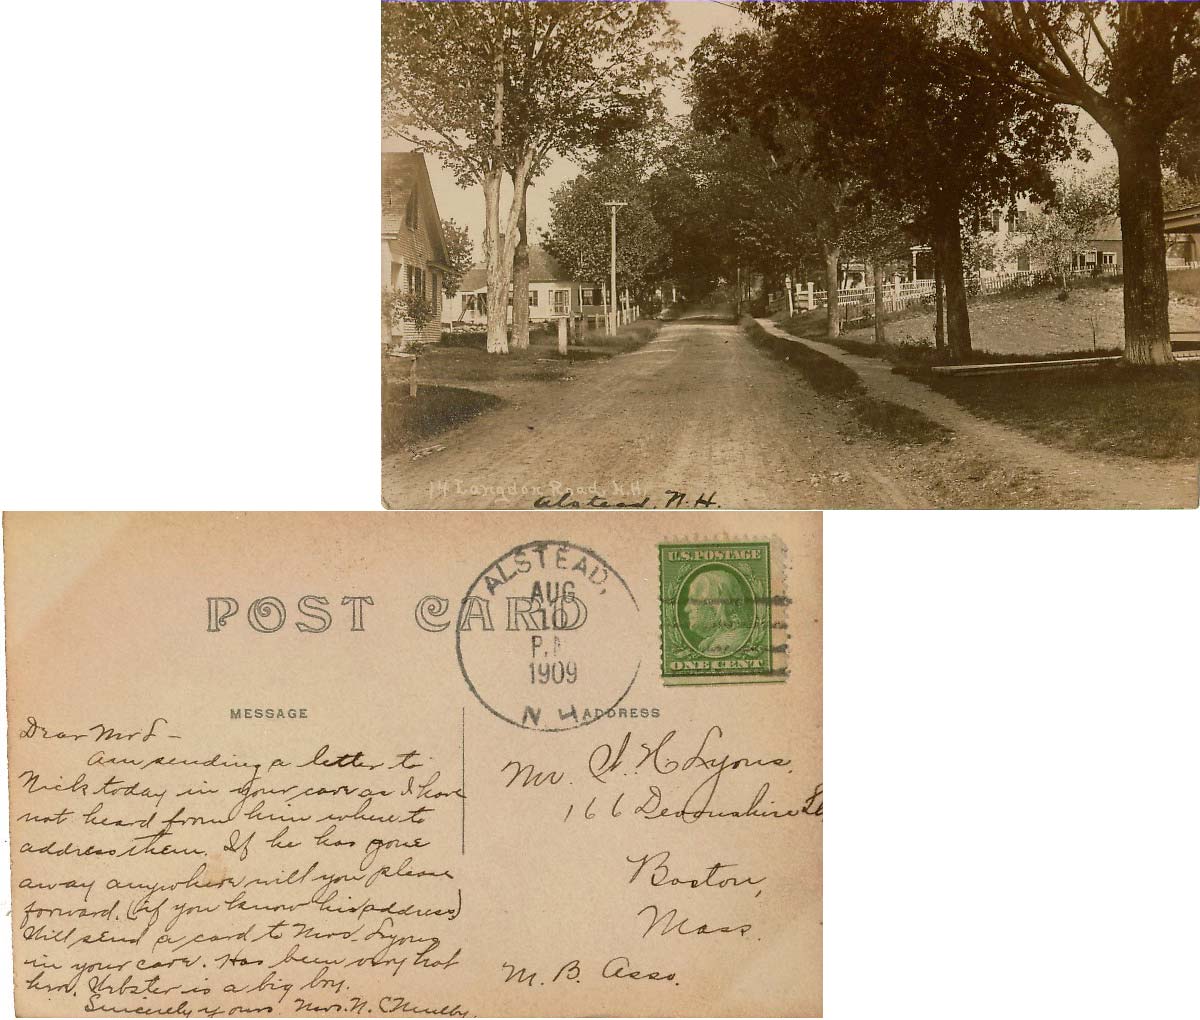 14 Langdon Road, N.H.
Alstead, N.H.
POST CARD
ALSTEAD,
AUG
10
1909
N H
U.S. POSTAGE
ONE CENT
MESSAGE
ADDRESS
Dear Mr L -
Am sending a letter to
Nick today in your care as I have
not heard from him where to
address them. If he has gone
away anywhere will you please
forward. (if you know his address)
Will send a card to Mrs. Lyons
in your care. Has been very hot
here. Webster is a big boy.
Sincerely yours. Mrs. N.
Mr. H. Lyons.
166 Devonshire St
Boston,
Mass.
M. B. Asso.